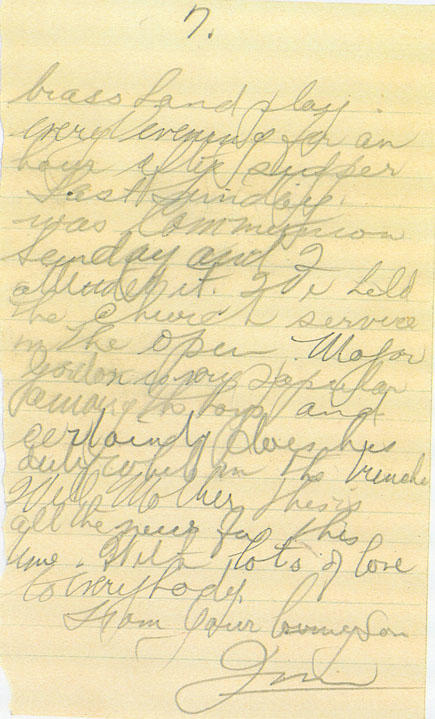 7.
brass band play
every evening for an
hour after supper
Last Sunday
was Communion
Sunday and I
attended it. We held
the Church service
in the open. Major
Gordon is very popular
among the boys and
certainly does his
duty when in the trenches
Well Mother this is
all the news for this
time. With lots of love
to everybody
From Your loving Son